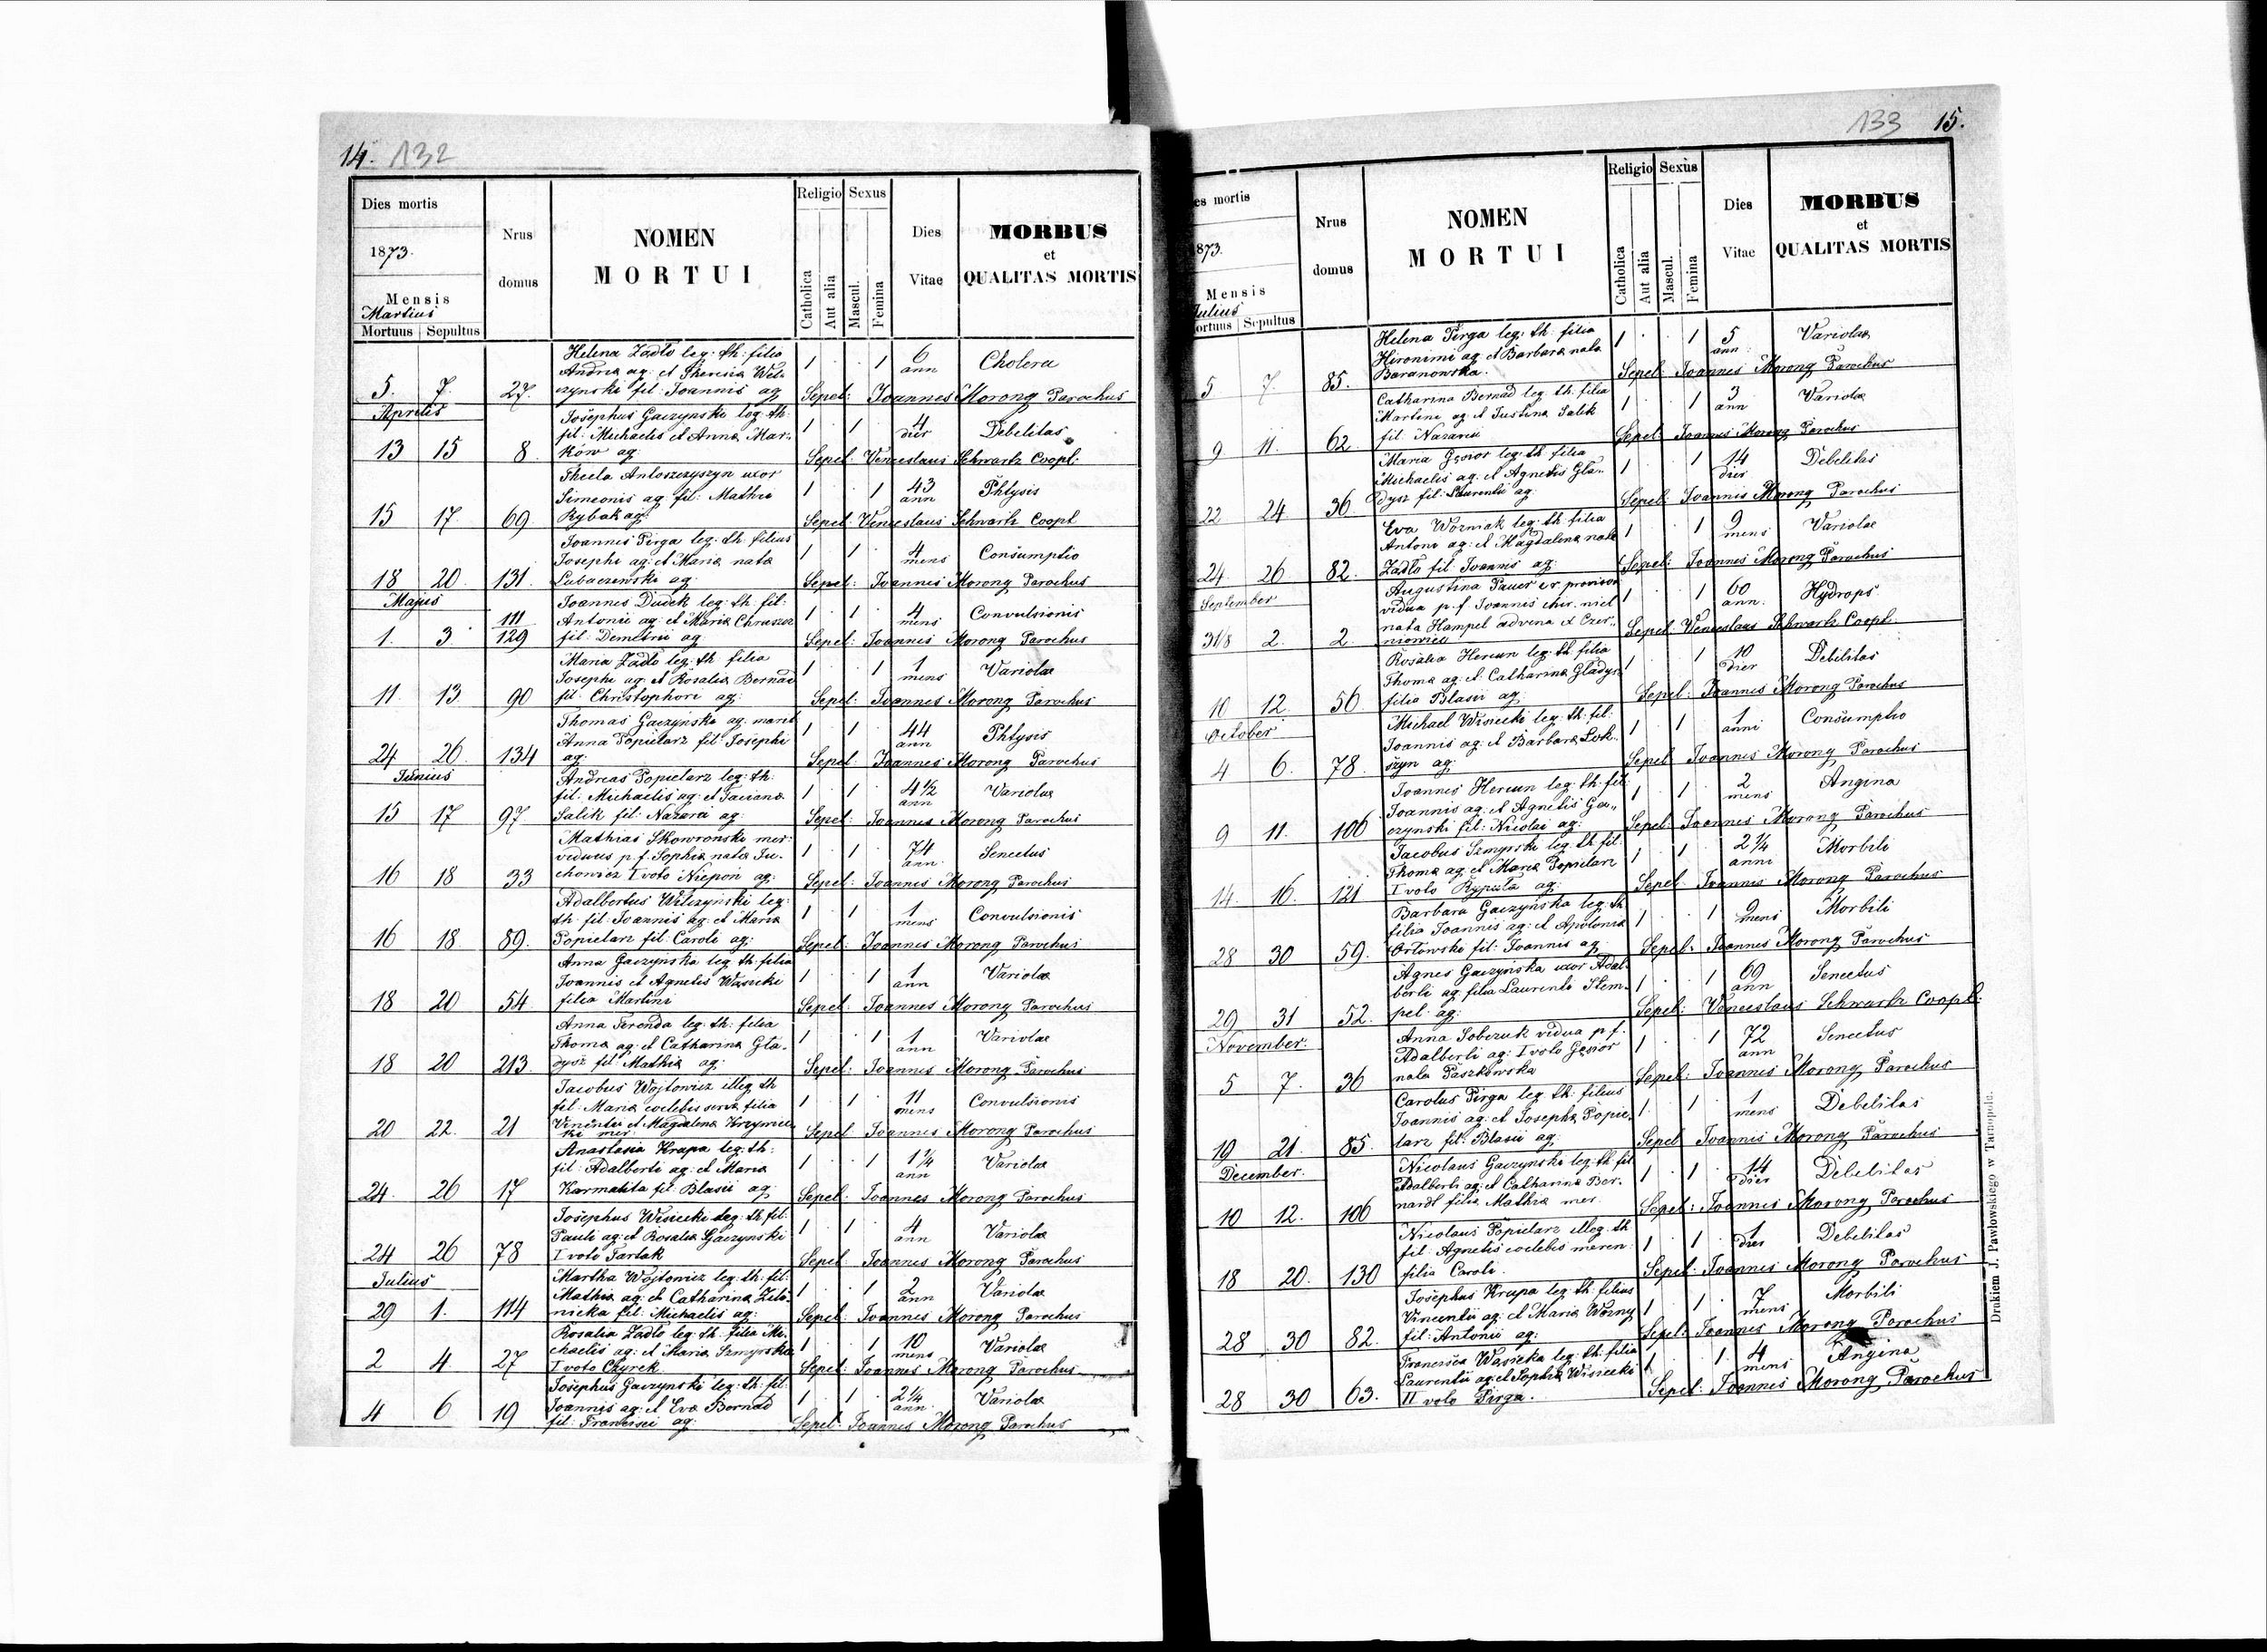 14. 132
Dies mortis
1873.
Mensis
Martius
Mortuus Sepultus
Nrus
domus
NOMEN
MORTUI
Religio Sexus
Catholica
Aut alia
Mascul.
Femina
Dies
Vitae
MORBUS
et
QUALITAS MORTIS
Helena Zadło leg: th: filia
Andreæ ag: et Theresiæ Wil-
5. 7. 27. czynski fil: Joannis ag 1 1 6 ann Cholera
Sepel: Joannes Morong Parochus
Aprilis
Josephus Gaczynski leg: th:
fil: Michaelis et Anna Mar-
13 15 8 ków ag: 1 1 4 dier Debelitas
Sepel: Venceslaus Schwartz Coopt.
Thecla Antoszczyszyn uxor
Simeonis ag fil: Mathiæ
15 17 69 Rybak ag: 1 1 43 ann Phtysis
Sepel: Venceslaus Schwartz Coopt
Joannes Pirga leg: th: filius
Josephi ag: et Mariæ nata
18 20 131. Lubaczewski ag: 1 1 4 mens Consumptio
Sepel: Joannes Morong Parochus
Majus
Joannes Dudek leg: th: fil:
Antonii ag: et Mariæ Chruszcz
1. 3 111 129 fil: Demetrii ag: 1 1 4 mens Convulsionis
Sepel: Joannes Morong Parochus
Maria Zadło leg: th: filia
Josephi ag: et Rosaliæ Bernad
11 13 90 fil: Christophori ag: 1 1 1 mens Variolæ
Sepel: Joannes Morong Parochus
Thomas Gaczynski ag: marit
Anna Popielarz fil: Josephi
24 26 134 ag: 1 1 44 ann Phtysis
Sepel: Joannes Morong Parochus
Junius
Andreas Popielarz leg: th:
fil: Michaelis ag: et Taciana
15 17 97 Salik fil: Nazarii ag: 1 1 4½ ann Variolæ
Sepel: Joannes Morong Parochus
Mathias Skowronski mer:
viduus p. f. Sophiæ nata Ju-
16 18 33 chowicz I voto Niepoń ag: 1 1 74 ann Senectus
Sepel: Joannes Morong Parochus
Adalbertus Wilczyński leg:
th: fil: Joannis ag: et Mariæ
16 18 89. Popielarz fil: Caroli ag: 1 1 1 mens Convulsionis
Sepel: Joannes Morong Parochus
Anna Gaczyńska leg: th: filia
Joannis et Agnetis Wasicki
18 20 54 filia Martini 1 1 1 ann Variolæ
Sepel: Joannes Morong Parochus
Anna Ferenda leg: th: filia
Thomæ ag: et Catharina Gła-
18 20 213 dysz fil: Mathiæ ag: 1 1 1 ann Variolæ
Sepel: Joannes Morong Parochus
Jacobus Wojtowicz illeg th
fil: Mariæ coelebis serva filia
Vincentii et Magdalena Krzywiec
20 22. 21 ki mer: 1 1 11 mens Convulsionis
Sepel: Joannes Morong Parochus
Anastasia Krupa leg: th:
fil: Adalberti ag: et Mariæ
24. 26 17 Karmalita fil: Blasii ag: 1 1 1¼ ann Variolæ
Sepel: Joannes Morong Parochus
Josephus Wisiecki leg: th: fil:
Pauli ag: et Rosaliæ Gaczynski
24 26 78 I voto Tartak 1 1 4 ann Variolæ
Sepel: Joannes Morong Parochus
Julius
Martha Wojtowicz leg: th: fil:
Mathiæ ag: et Catharina Zilo-
29 1. 114 nicka fil: Michaelis ag: 1 1 2 ann Variolæ
Sepel: Joannes Morong Parochus
Rosalia Zadło leg: th: filia Mi-
chaelis ag: et Mariæ Szmyrska
2 4. 27 I voto Chyrek 1 1 10 mens Variolæ
Sepel: Joannes Morong Parochus
Josephus Gaczynski leg: th: fil:
Joannis ag: et Evæ Bernad
4 6 19 fil: Francisci ag: 1 1 2¼ ann. Variolæ
Sepel: Joannes Morong Parochus
133 15.
es mortis
873.
Mensis
Julius
ortuus Sepultus
Nrus
domus
NOMEN
MORTUI
Religio Sexus
Catholica
Aut alia
Mascul.
Femina
Dies
Vitae
MORBUS
et
QUALITAS MORTIS
Helena Pirga leg: th: filia
Hironimi ag: et Barbara nata
5 7. 85. Baranowska. 1 1 5 ann: Variolæ
Sepel: Joannes Morong Parochus
Catharina Bernad leg: th: filia
Martini ag: et Justina Salik
9 11. 62. fil: Nazarii 1 1 3 ann Variolæ
Sepel: Joannes Morong Parochus
Maria Gęsior leg: th: filia
Michaelis ag: et Agnetis Gła-
22 24 36 dysz fil: Laurentii ag: 1 1 14 dier Debelitas
Sepel: Joannes Morong Parochus
Eva Wozniak leg: th: filia
Antoni ag: et Magdalena nata
24 26 82. Zadło fil: Joannis ag: 1 1 9 mens Variolæ
Sepel: Joannes Morong Parochus
September
Augustina Pauer ex provisor
vidua p. f. Joannis chir. niel
nata Hampel advena et Czer-
31/8 2. 2. niowiec 1 1 60 ann. Hydrops
Sepel: Venceslaus Schwartz Coopt.
Rosalia Hercun leg: th: filia
Thomæ ag: et Catharina Gladysz
10 12. 56 filia Blasii ag: 1 1 10 dier Debilitas
Sepel: Joannes Morong Parochus
October
Michael Wisiecki leg: th: fil:
Joannis ag: et Barbara Łok-
4 6. 78. szyn ag: 1 1 1 anni Consumptio
Sepel: Joannes Morong Parochus
Joannes Hercun leg: th: fil:
Joannis ag: et Agnetis Ga-
9 11. 106 czynski fil: Nicolai ag: 1 1 2 mens Angina
Sepel: Joannes Morong Parochus
Jacobus Szmyrski leg: th: fil:
Thomæ ag: et Mariæ Popielarz
14. 16. 121 I voto Rypuła ag: 1 1 2¼ anni Morbili
Sepel: Joannes Morong Parochus
Barbara Gaczyńska leg: th
filia Joannis ag: et Apolonia
28 30 59. Orłowski fil: Joannis ag: 1 1 9 mens Morbili
Sepel: Joannes Morong Parochus
Agnes Gaczyńska uxor Adal-
berti ag: filia Laurenti Stem-
29 31 52. pel ag: 1 1 60 ann Senectus
Sepel: Venceslaus Schwartz Coopt:
November:
Anna Sobczuk vidua p. f.
Adalberti ag: I voto Gęsior
5 7. 36 nata Paszkowska 1 1 72 ann Senectus
Sepel: Joannes Morong Parochus
Carolus Pirga leg: th: filius
Joannis ag: et Josepha Popie-
19 21. 85. larz fil: Blasii ag: 1 1 1 mens Debelitas
Sepel: Joannes Morong Parochus
December.
Nicolaus Gaczynski leg: th: fil
Adalberti ag: et Catharina Ber-
10 12. 106 nardt filia Mathiæ mer 1 1 14 dier Debelitas
Sepel: Joannes Morong Parochus
Nicolaus Popielarz illeg: th
fil: Agnetis coelebis meren:
18 20. 130 filia Caroli. 1 1 1 dier Debelitas
Sepel: Joannes Morong Parochus
Josephus Krupa leg: th: filius
Vincentii ag: et Mariæ Wozny
28 30 82. fil: Antonii ag: 1 1 7 mens Morbili
Sepel: Joannes Morong Parochus
Francisca Wasicka leg: th: filia
Laurentii ag: et Sophiæ Wisiecki
28 30 63. II voto Pirga. 1 1. 4 mens Angina
Sepel: Joannes Morong Parochus
Drukiem J. Pawłowskiego w Tarnopolu.